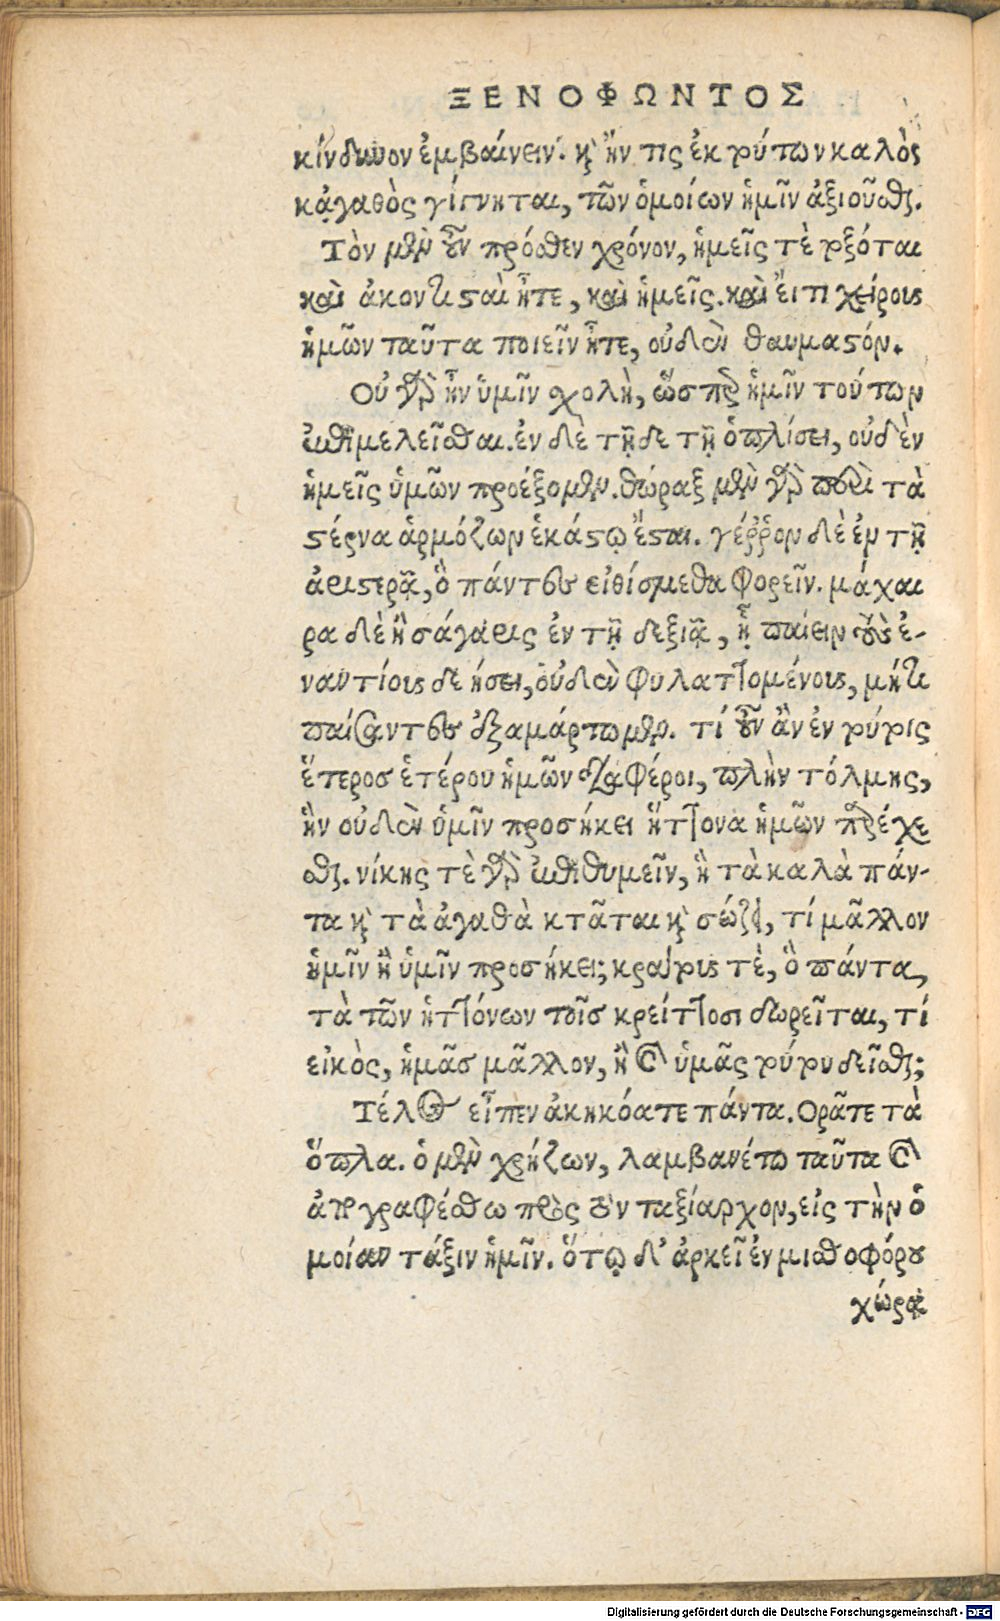 ΞΕΝΟΦΩΝΤΟΣ
κίνδυνον ἐμβαίνειν. καὶ ἤν τις ἐκ τούτων καλὸς
κἀγαθὸς γίγνηται, τῶν ὁμοίων ἡμῖν ἀξιοῦσθαι.
Τὸν μὲν οὖν πρόσθεν χρόνον, ἡμεῖς τὲ τοξόται
καὶ ἀκοντισταὶ ἦτε, καὶ ἡμεῖς. καὶ εἴ τι χείρους
ἡμῶν ταῦτα ποιεῖν ἦτε, οὐδὲν θαυμαστόν.
Οὐ γὰρ ἦν ὑμῖν σχολὴ, ὥσπερ ἡμῖν τούτων
ἐπιμελεῖσθαι. ἐν δὲ τῇδε τῇ ὁπλίσει, οὐδὲν
ἡμεῖς ὑμῶν προέξομεν. θώραξ μὲν γὰρ περὶ τὰ
στέρνα ἁρμόζων ἑκάστῳ ἔσται. γέῤῥον δὲ ἐν τῇ
ἀριστερᾷ, ὃ πάντες εἰθίσμεθα φορεῖν. μάχαι
ρα δὲ ἢ σάγαρις ἐν τῇ δεξιᾷ, ᾗ παίειν τοὺς ἐ-
ναντίους δεήσει, οὐδὲν φυλαττομένους, μήτε
παίσαντες ἐξαμάρτωμεν. τί οὖν ἂν ἐν τούτοις
ἕτερος ἑτέρου ἡμῶν διαφέροι, πλὴν τόλμης,
ἣν οὐδὲν ὑμῖν προσήκει ἥττονα ἡμῶν παρέχε
σθαι. νίκης τὲ γὰρ ἐπιθυμεῖν, ἢ τὰ καλὰ πάν-
τα καὶ τὰ ἀγαθὰ κτᾶται καὶ σώζει, τί μᾶλλον
ἡμῖν ἢ ὑμῖν προσήκει; κράτους τὲ, ὃ πάντα,
τὰ τῶν ἡττόνων τοῖς κρείττοσι δωρεῖται, τί
εἰκὸς, ἡμᾶς μᾶλλον, ἢ καὶ ὑμᾶς τούτου δεῖσθαι;
Τέλος εἶπεν ἀκηκόατε πάντα. Ορᾶτε τὰ
ὅπλα. ὁ μὲν χρῄζων, λαμβανέτω ταῦτα καὶ
ἀπογραφέσθω πρὸς τὸν ταξίαρχον, εἰς τὴν ὁ
μοίαν τάξιν ἡμῖν. ὅτῳ δ' ἀρκεῖ ἐν μισθοφόρου
χώρᾳ